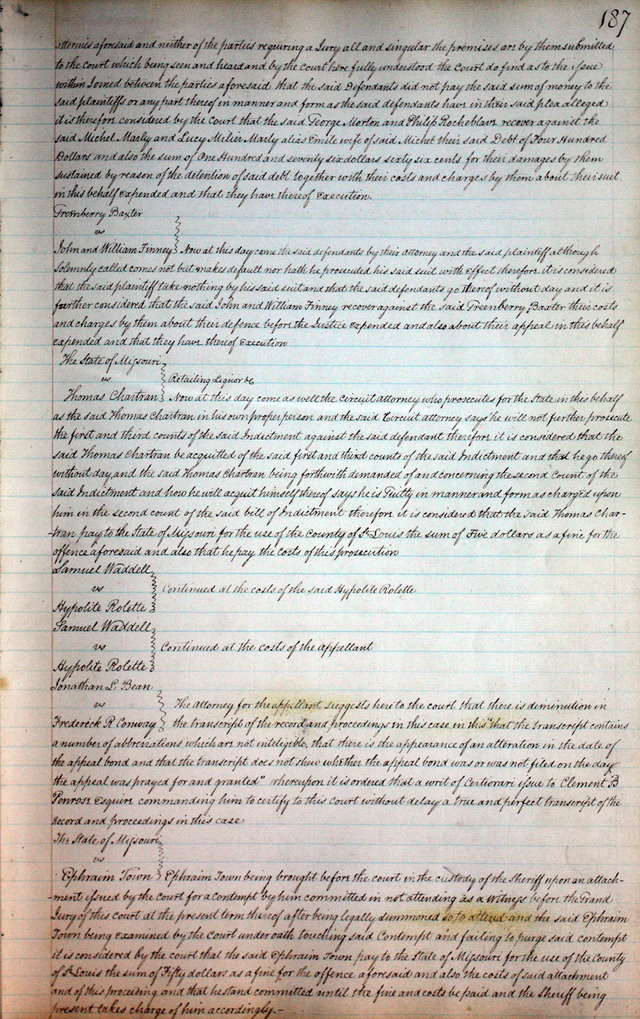 187
attornies aforesaid and neither of the parties requiring a Jury all and singular the premises are by them submitted
to the court which being seen and heard and by the court here fully understood the Court do find as to the issue
within Joined between the parties aforesaid that the said Defendants did not pay the said sum of money to the
said plaintiffs or any part thereof in manner and form as the said defendants have in their said plea alleged
it is therefore considered by the Court that the said George Morton and Philip Rocheblave recover against the
said Michel Marly and Lucy Milier Marly alias Emilé wife of said Michel their said Debt of Four Hundred
Dollars and also the sum of One Hundred and seventy six dollars sixty six cents for their damages by them
sustained by reason of the detention of said debt together with their costs and charges by them about their suit
in this behalf expended and that they have thereof execution.
Greenberry Baxter
vs
John and William Finney Now at this day come the said defendants by their attorney and the said plaintiff although
solemnly called comes not but makes default nor hath he prosecuted his said suit with effect therefore it is considered
that the said plaintiff take nothing by his said suit and that the said defendants go thereof without day and it is
further considered that the said John and William Finney recover against the said Greenberry Baxter their costs
and charges by them about their defence before the Justice expended and also about their appeal in this behalf
expended and that they have thereof execution
The State of Missouri
vs Retailing Liquor &c
Thomas Chartran Now at this day come as well the Circuit attorney who prosecutes for the State in this behalf
as the said Thomas Chartran in his own proper person and the said Circuit attorney says he will not further prosecute
the first and third counts of the said Indictment against the said defendant therefore it is considered that the
said Thomas Chartran be acquitted of the said first and third counts of the said Indictment and that he go thereof
without day, and the said Thomas Chartran being forthwith demanded of and concerning the second Count of the
said Indictment and how he will acquit himself thereof says he is Guilty in manner and form as charged upon
him in the second count of the said bill of Indictment therefore it is considered that the said Thomas Char-
tran pay to the State of Missouri for the use of the County of St Louis the sum of Five dollars as a fine for the
offence aforesaid and also that he pay the costs of this prosecution
Samuel Waddell
vs Continued at the costs of the said Hypolite Rolette
Hypolite Rolette
Samuel Waddell
vs Continued at the costs of the appellant
Hypolite Rolette
Jonathan L. Bean
vs The Attorney for the appellant suggests here to the court that there is diminution in
Frederick R Conway the transcript of the record and proceedings in this case in this "that the transcript contains
a number of abbreviations which are not inteligible, that there is the appearance of an alteration in the date of
the appeal bond and that the transcript does not shew whether the appeal bond was or was not filed on the day
the appeal was prayed for and granted" whereupon it is ordered that a writ of Certiorari issue to Clement B
Penrose Esquire commanding him to certify to this court without delay a true and perfect transcript of the
record and proceedings in this case
The State of Missouri
vs
Ephraim Town Ephraim Town being brought before the court in the custody of the Sheriff upon an attach-
ment issued by the court for a contempt by him committed in not attending as a Witness before the Grand
Jury of this court at the present term thereof after being legally summoned so to attend and the said Ephraim
Town being examined by the Court under oath touching said Contempt and failing to purge said contempt
it is considered by the court that the said Ephraim Town pay to the State of Missouri for the use of the County
of St Louis the sum of Fifty dollars as a fine for the offence aforesaid and also the costs of said attachment
and of this proceeding and that he stand committed until the fine and costs be paid and the Sheriff being
present takes charge of him accordingly.–